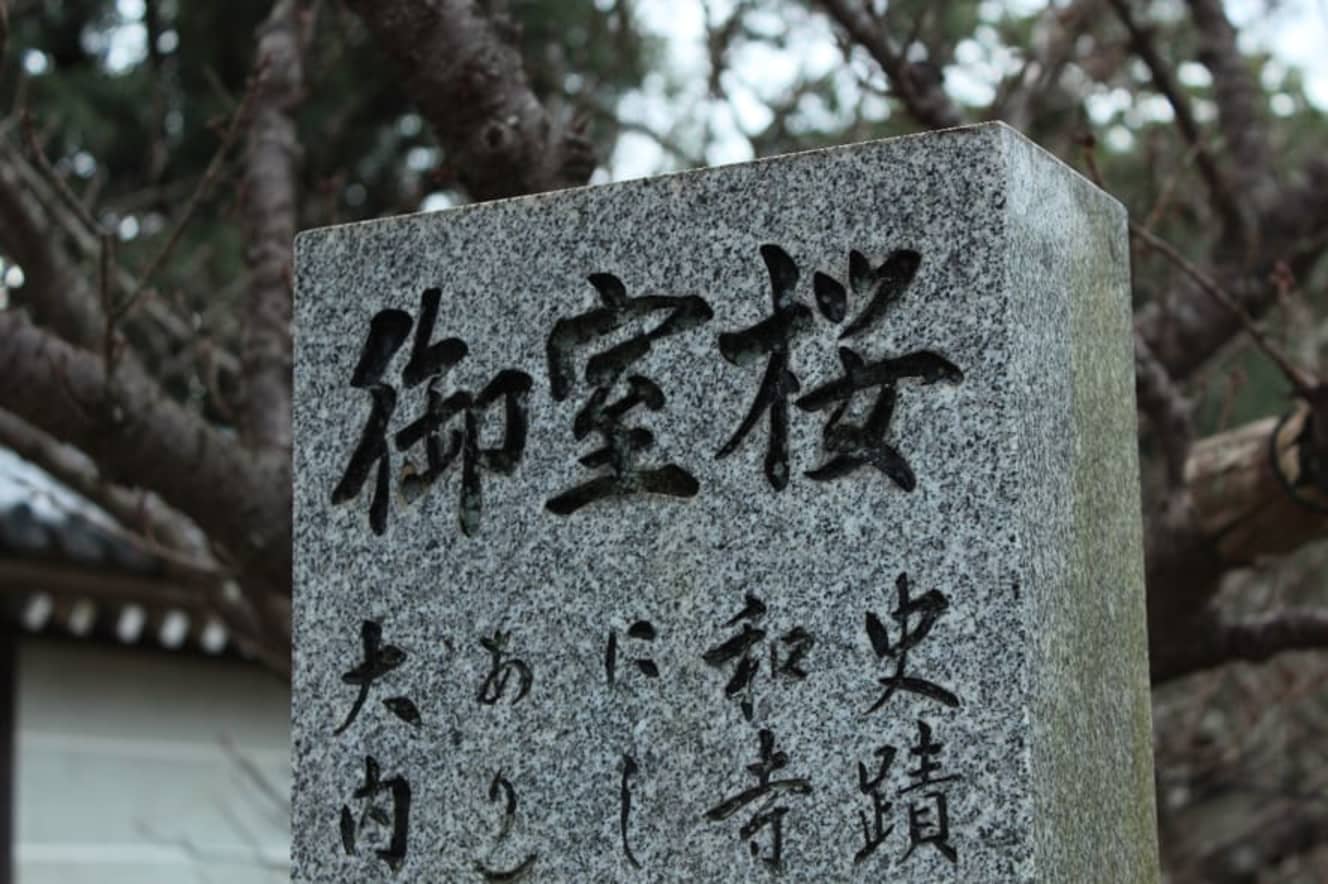 御室桜
史蹟
和寺
にし
あり
大内